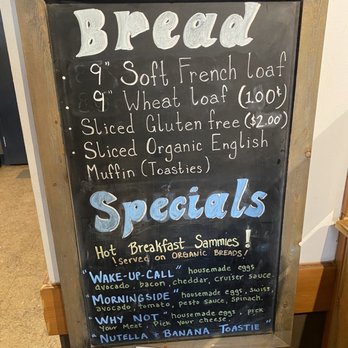 Bread
9" Soft French loaf
9" Wheat loaf (100¢)
Sliced Gluten free ($2.00)
Sliced Organic English
Muffin (Toasties)
Specials
Hot Breakfast Sammies!
! SERVED ON ORGANIC BREADS!
"WAKE-UP-CALL" housemade eggs,
avocado, bacon, cheddar, cruiser sauce.
"MORNINGSIDE" housemade eggs, swiss,
avocado, tomato, pesto sauce, spinach.
"WHY NOT" housemade eggs, pick
your meat, Pick your cheese.
"NUTELLA + BANANA TOASTIE"